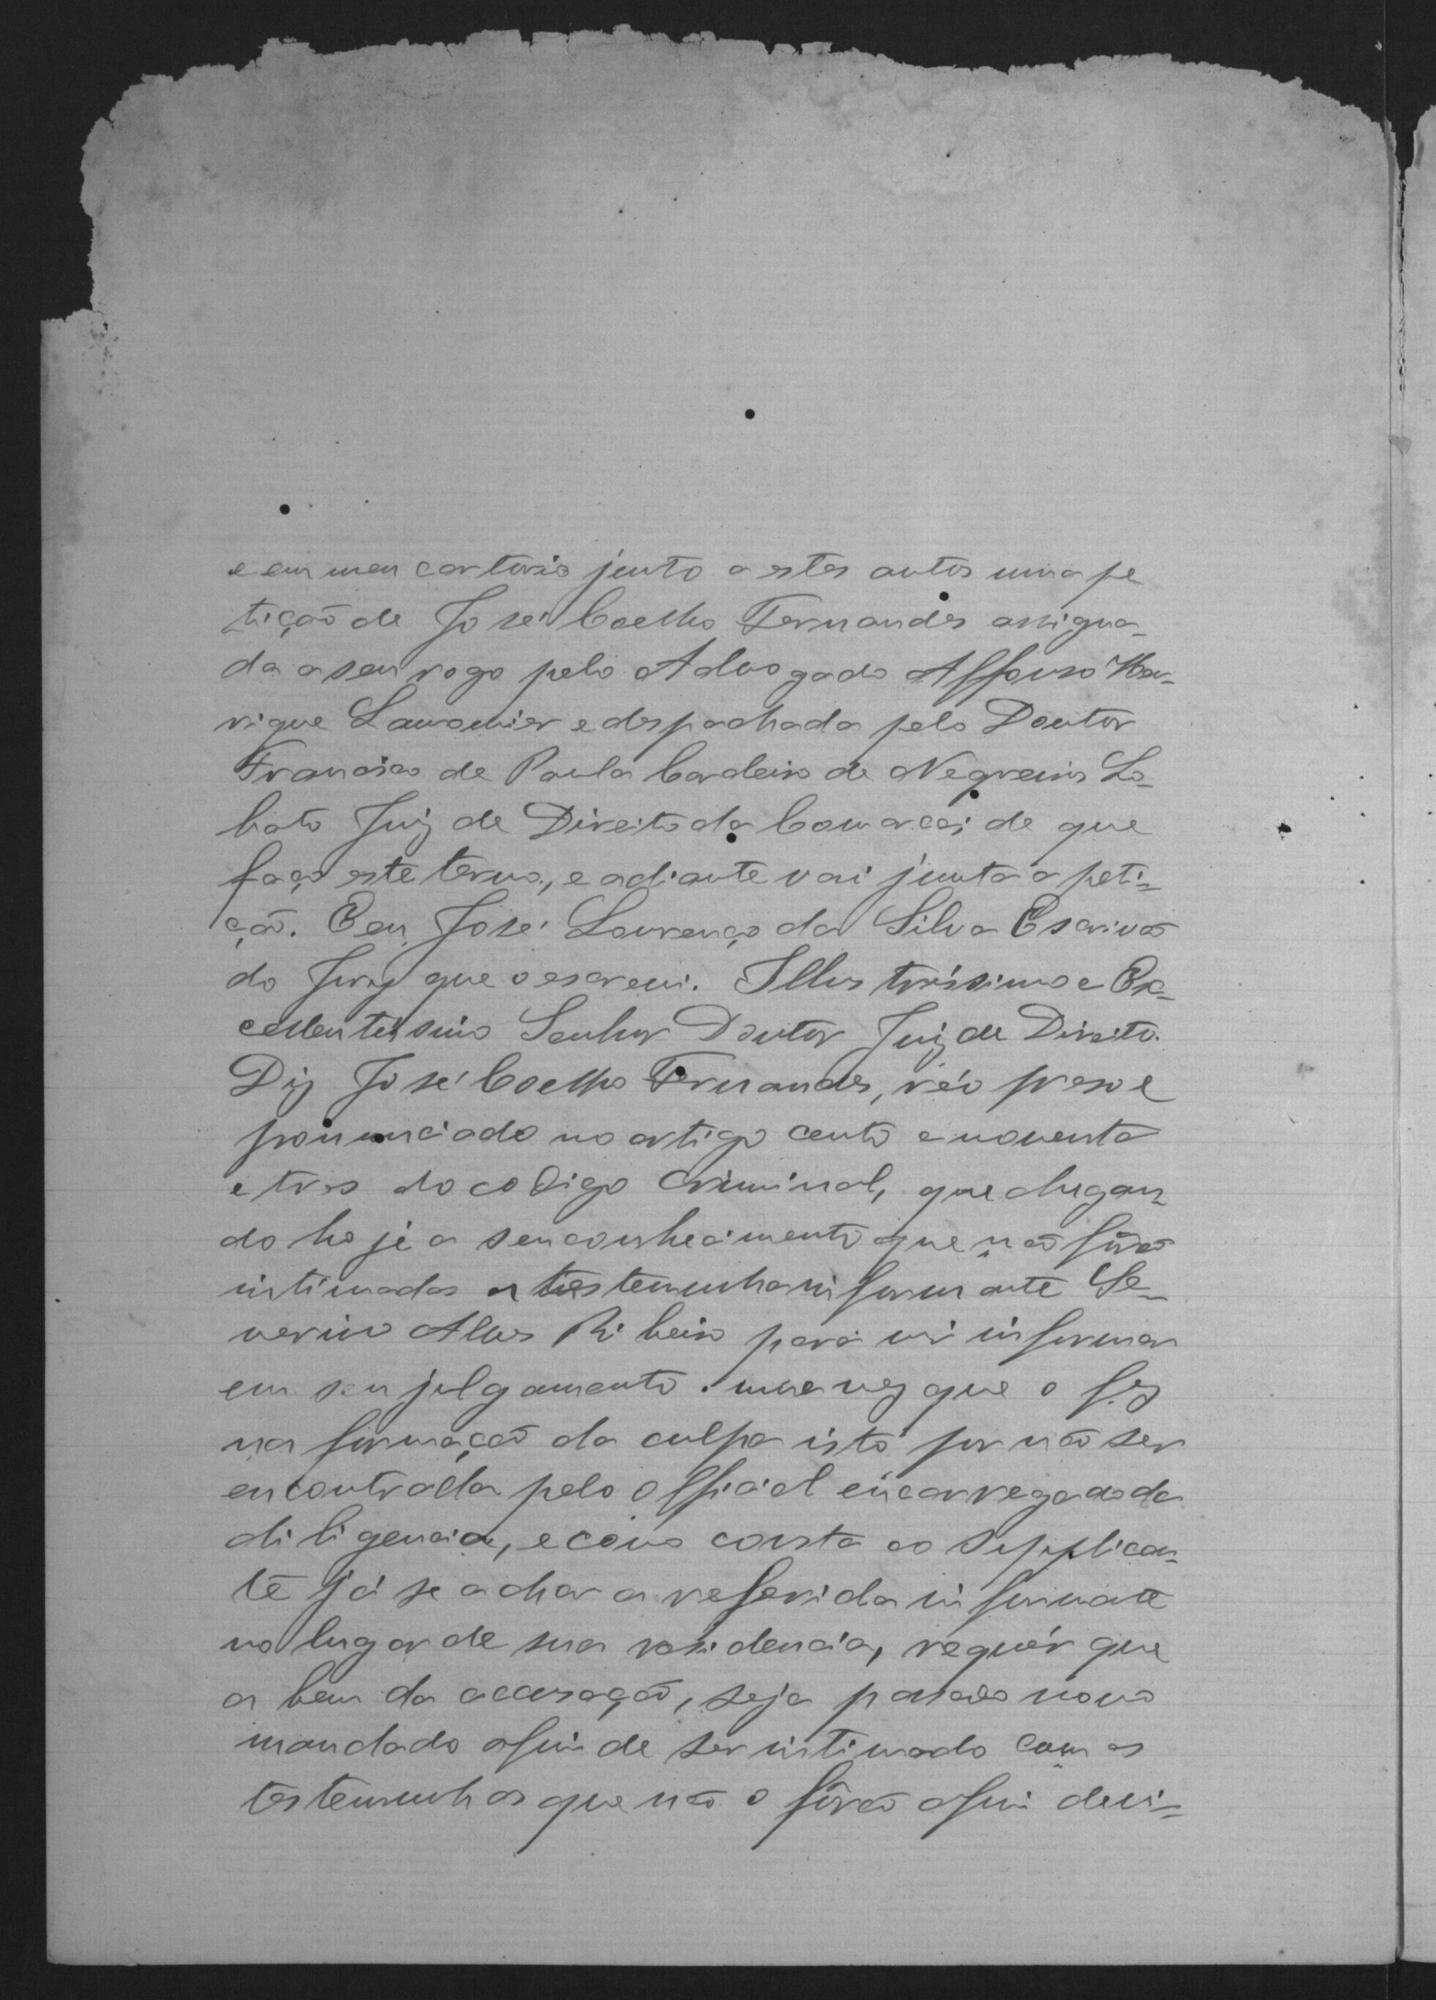 e em meu cartorio junto a estes autos uma pe
tição de José Coelho Fernandes assigna-
da a seu rogo pelo Advogado Affonso Hen-
rique Lamounier e despachada pelo Doutor
Francisco de Paula Cordeiro de Negreiros Lo-
bato Juiz de Direito da Comarca; de que
faço este termo, e adiante vai junta a peti-
ção. Eu José Lourenço da Silva Escrivão
do Jury que o escrevi. Illustrissimo e Ex-
cellentissimo Senhor Doutor Juiz de Direito.
Diz José Coelho Fernandes, réo preso e
pronunciado no artigo cento e noventa
e tres do codigo Criminal, que chegan-
do hoje a seu conhecimento que não forão
intimadas a testemunha informante Se-
verino Alves Ribeiro para vir informar
em seu julgamento uma vez que o fez
na formação da culpa isto por não ser
encontrada pelo official encarregado da
diligencia, e como consta ao Supplican-
te já se achar a referida informante
no lugar de sua residencia, requér que
a bem da accusação, seja passado novo
mandado afim de ser intimado com as
testemunhas que não o fôrão afim de vi-